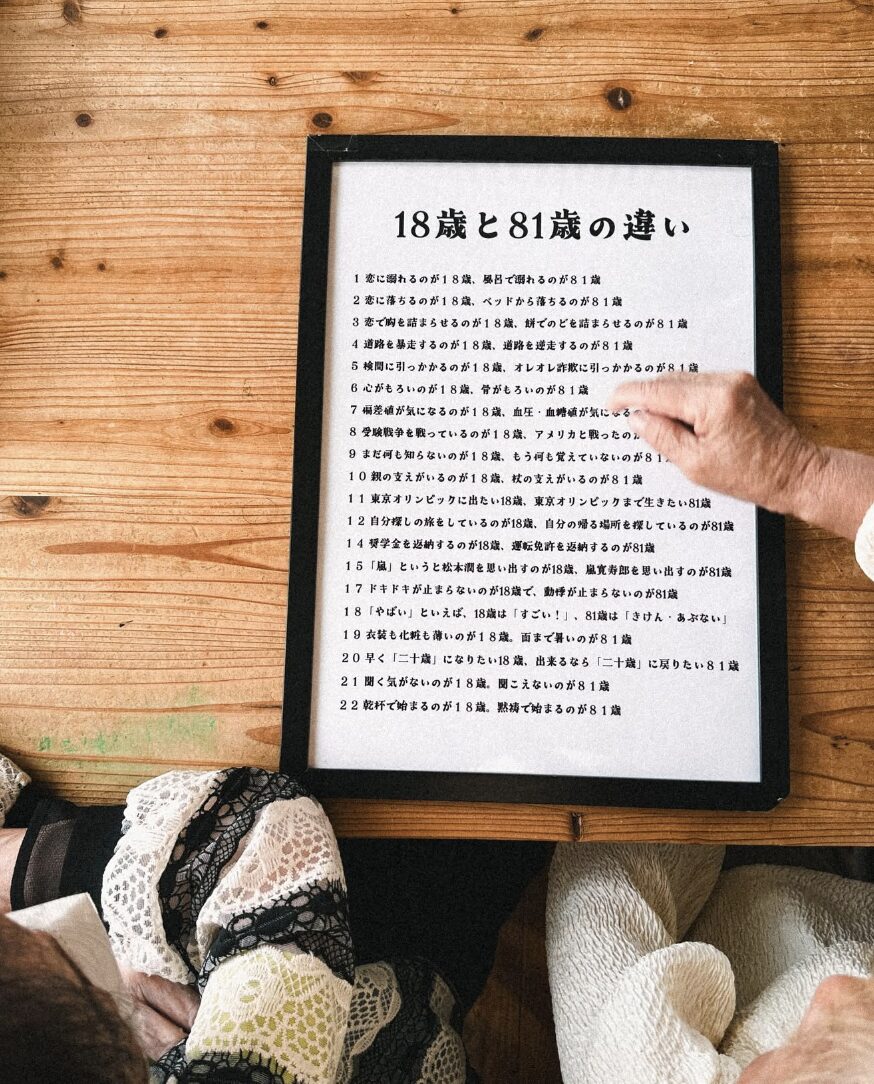 18歳と81歳の違い
1 恋に溺れるのが18歳、風呂で溺れるのが81歳
2 恋に落ちるのが18歳、ベッドから落ちるのが81歳
3 恋で胸を詰まらせるのが18歳、餅でのどを詰まらせるのが81歳
4 道路を暴走するのが18歳、道路を逆走するのが81歳
5 検問に引っかかるのが18歳、オレオレ詐欺に引っかかるのが81歳
6 心がもろいのが18歳、骨がもろいのが81歳
7 偏差値が気になるのが18歳、血圧・血糖値が気になるの
8 受験戦争を戦っているのが18歳、アメリカと戦ったのが
9 まだ何も知らないのが18歳、もう何も覚えていないのが81
10 親の支えがいるのが18歳、杖の支えがいるのが81歳
11 東京オリンピックに出たい18歳、東京オリンピックまで生きたい81歳
12 自分探しの旅をしているのが18歳、自分の帰る場所を探しているのが81歳
14 奨学金を返納するのが18歳、運転免許を返納するのが81歳
15 「嵐」というと松本潤を思い出すのが18歳、嵐寛寿郎を思い出すのが81歳
17 ドキドキが止まらないのが18歳で、動悸が止まらないのが81歳
18 「やばい」といえば、18歳は「すごい！」、81歳は「きけん・あぶない」
19 衣装も化粧も薄いのが18歳。面まで暑いのが81歳
20 早く「二十歳」になりたい18歳、出来るなら「二十歳」に戻りたい81歳
21 聞く気がないのが18歳。聞こえないのが81歳
22 乾杯で始まるのが18歳。黙祷で始まるのが81歳